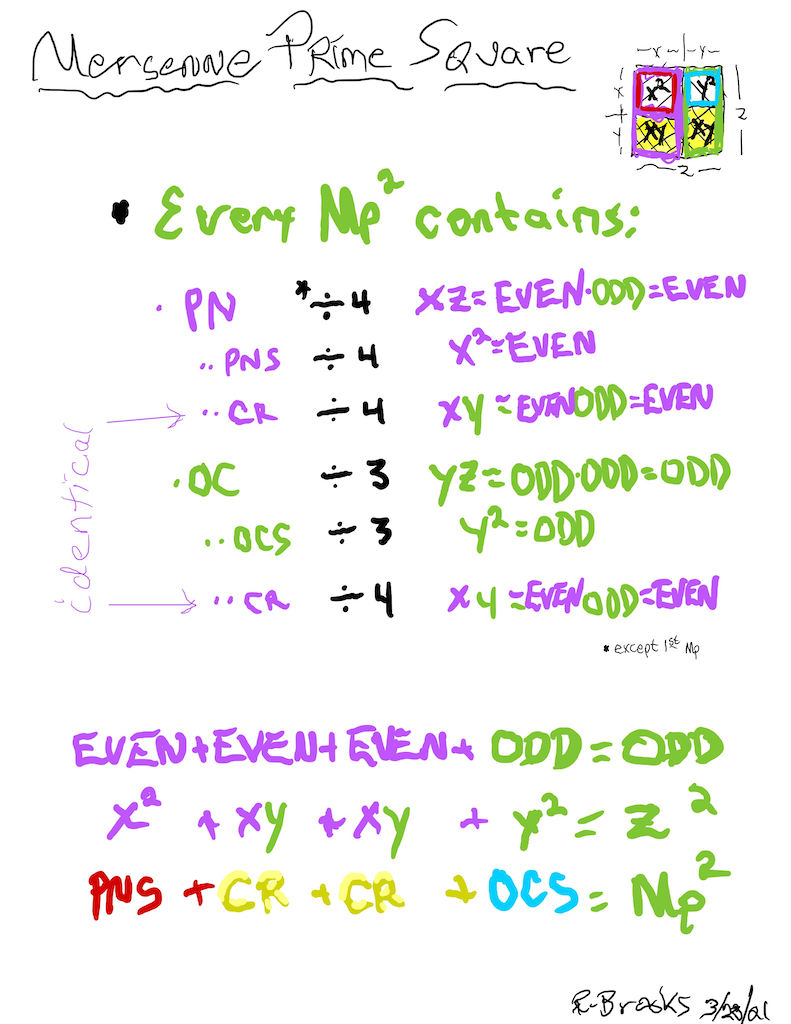 Mersenne Prime Square
-x-|-y-
x x² y² z
+
y xy xy
z
• Every Mp² contains:
· PN *÷4 xz = EVEN·ODD = EVEN
·· PNS ÷4 x² = EVEN
·· CR ÷4 xy = EVENODD = EVEN
identical
· OC ÷3 yz = ODD·ODD = ODD
·· OCS ÷3 y² = ODD
·· CR ÷4 xy = EVENODD = EVEN
* except 1st Mp
EVEN + EVEN + EVEN + ODD = ODD
x² + xy + xy + y² = z²
PNS + CR + CR + OCS = Mp²
R-Brooks 3/28/21